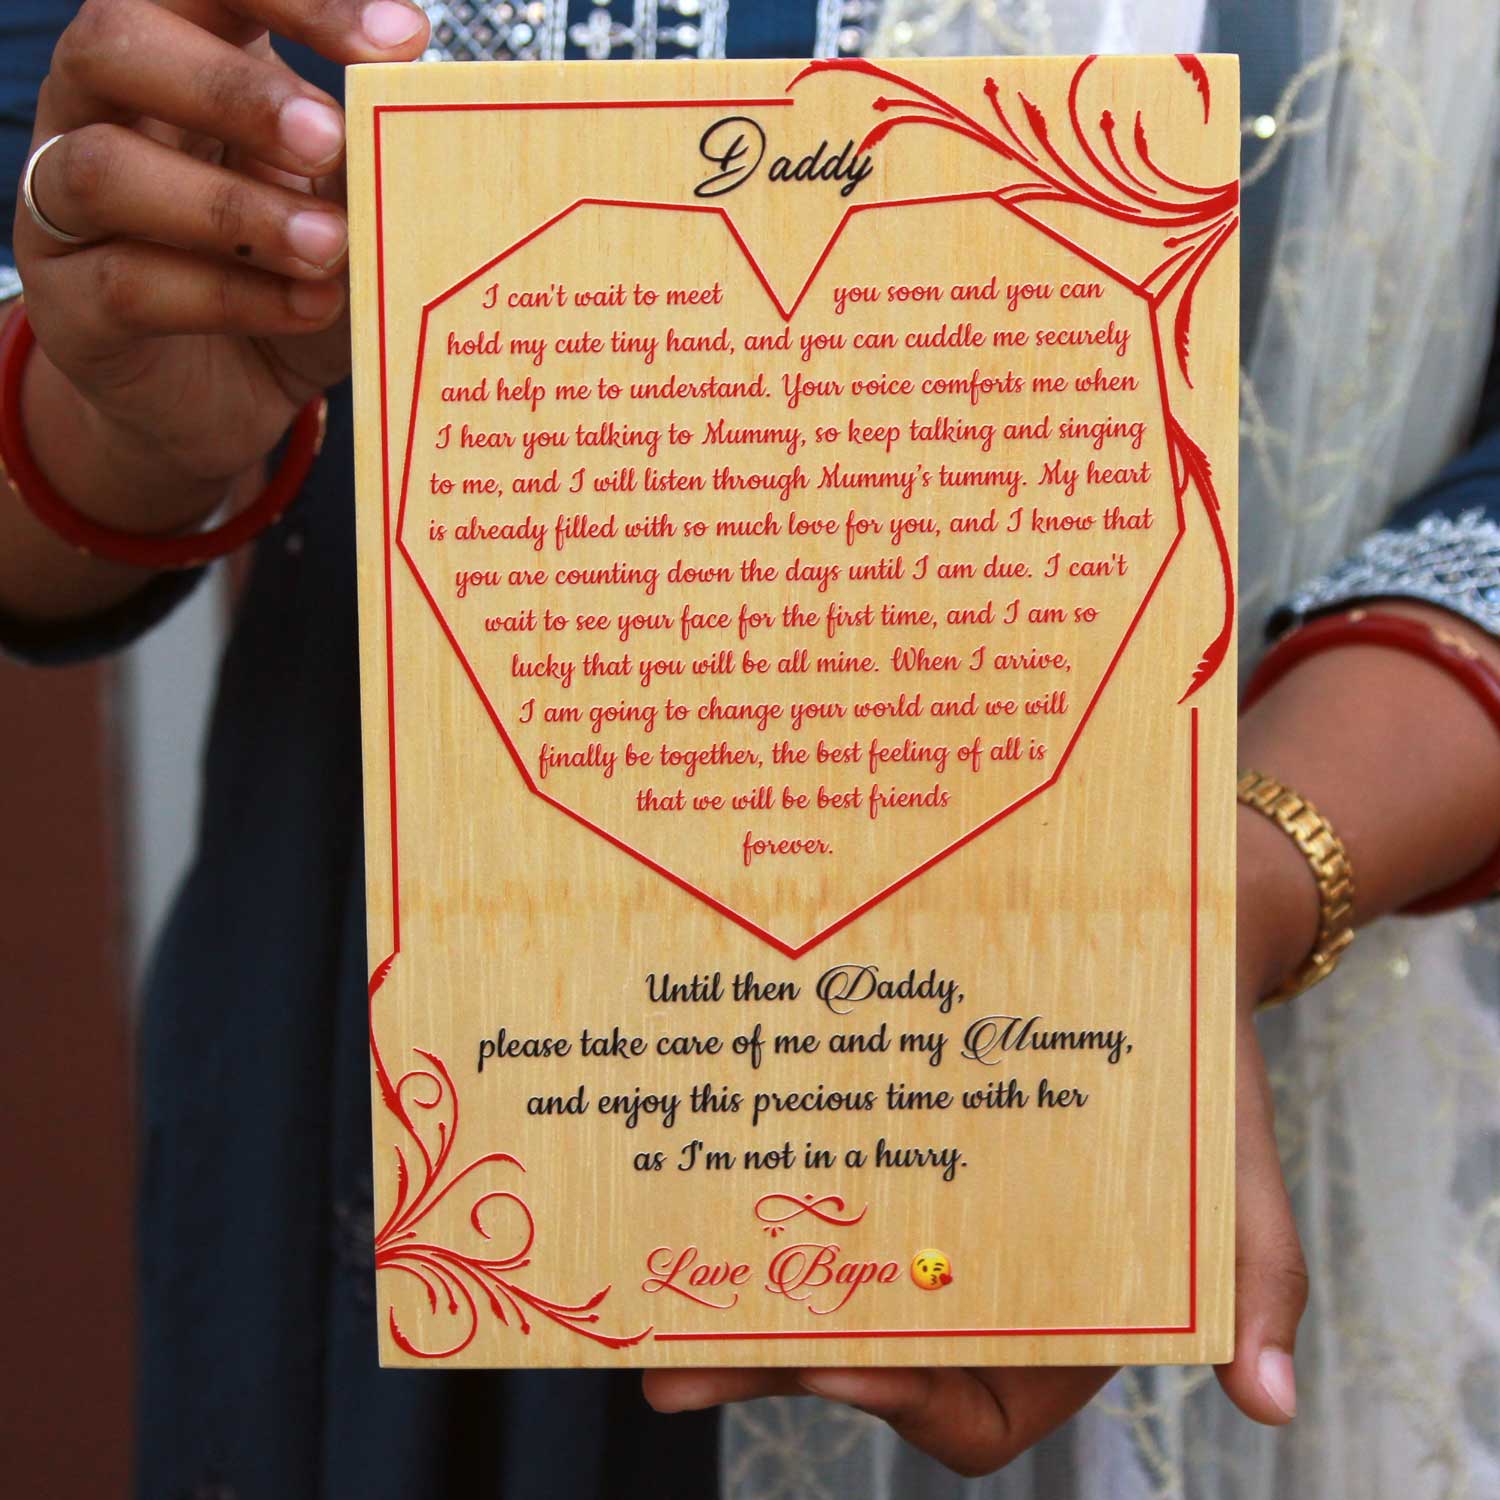 Daddy
I can't wait to meet you soon and you can
hold my cute tiny hand, and you can cuddle me securely
and help me to understand. Your voice comforts me when
I hear you talking to Mummy, so keep talking and singing
to me, and I will listen through Mummy's tummy. My heart
is already filled with so much love for you, and I know that
you are counting down the days until I am due. I can't
wait to see your face for the first time, and I am so
lucky that you will be all mine. When I arrive,
I am going to change your world and we will
finally be together, the best feeling of all is
that we will be best friends
forever.
Until then Daddy,
please take care of me and my Mummy,
and enjoy this precious time with her
as I'm not in a hurry.
Love Bapo 😘